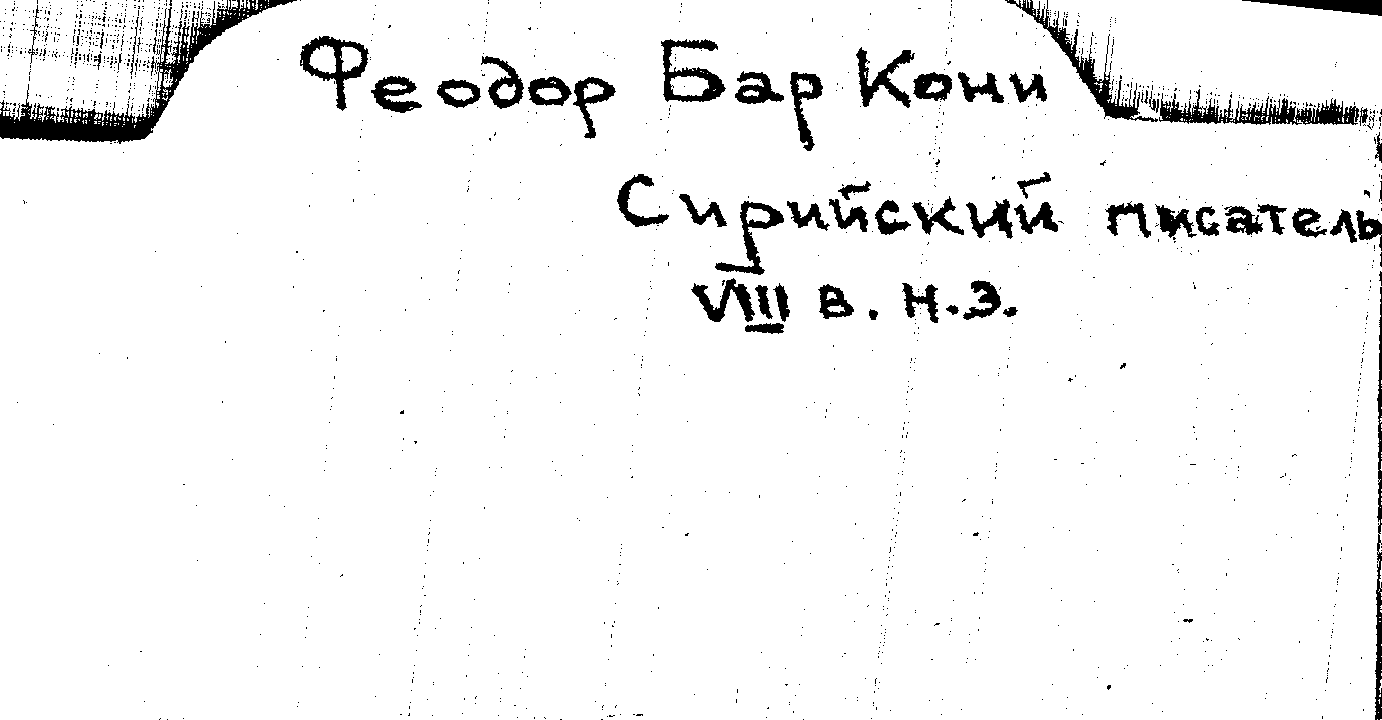 Феодор Бар Кони
Сирийский писатель
VIII в. н.э.